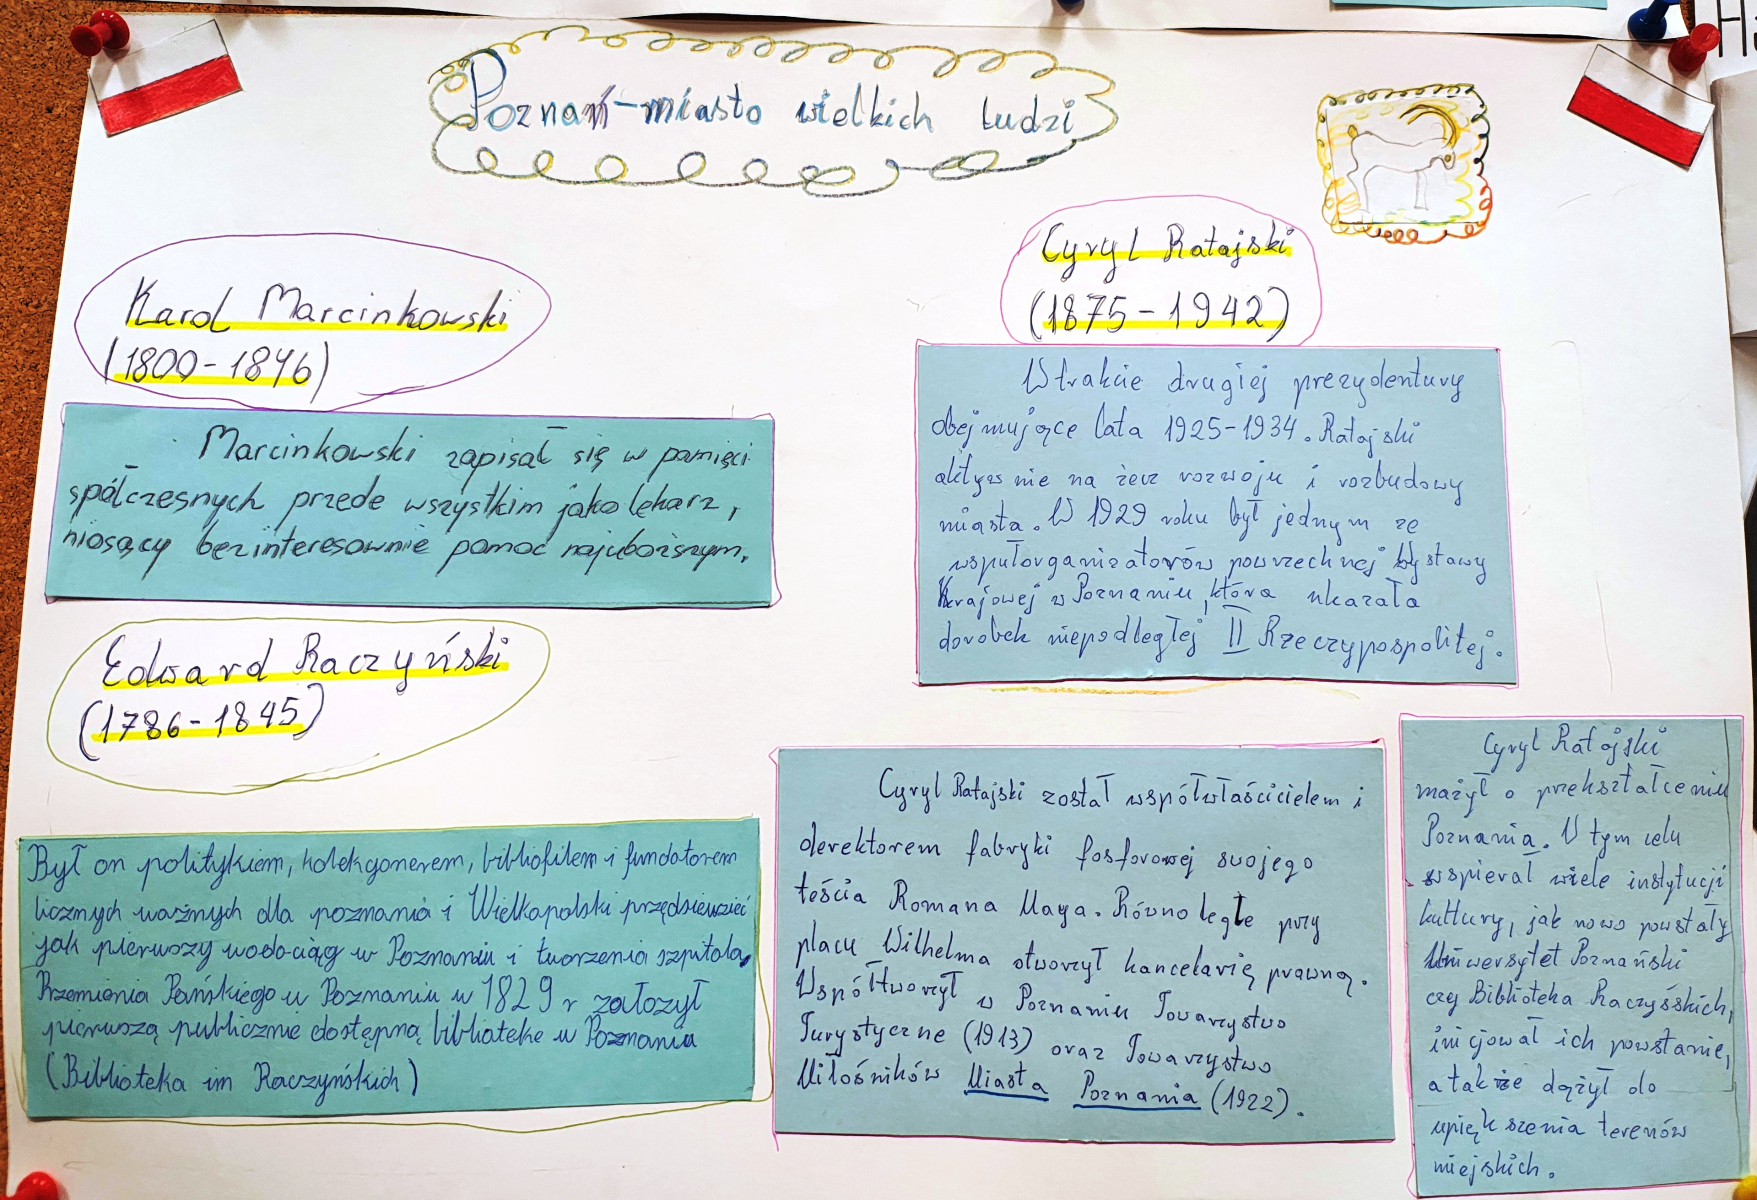 Poznań-miasto wielkich ludzi
Karol Marcinkowski
(1800-1846)
Marcinkowski zapisał się w pamięci
spółczesnych przede wszystkim jako lekarz,
niosący bezinteresownie pomoc najuboższym.
Edward Raczyński
(1786-1845)
Był on politykiem, kolekcjonerem, bibliofilem i fundatorem
licznych ważnych dla poznania i Wielkopolski przędsiewzieć
jak pierwszy wodociąg w Poznaniu i tworzenia szpitala
Przemienia Pańskiego w Poznaniu w 1829 r założył
pierwszą publicznie dostępną biblioteke w Poznaniu
(Biblioteka im Raczyńskich)
Cyryl Ratajski
(1875-1942)
W trakcie drugiej prezydentury
obejmujące lata 1925-1934. Ratajski
nie na rzecz rozwoju i rozbudowy
miasta. W 1929 roku był jednym ze
wspułorganizatorów powrzechnej Wystawy
Krajowej w Poznaniu, która ukazała
dorobek niepodległej II Rzeczypospolitej.
Cyryl Ratajski został współwłaścicielem i
derektorem fabryki fosforowej swojego
teścia Romana Maya. Równolegle przy
placu Wilhelma otworzył kancelarię prawną.
Współtworzył w Poznaniu Towarzystwo
Turystyczne (1913) oraz Towarzystwo
Miłośników Miasta Poznania (1922).
Cyryl Ratajski
mażył o przekształceniu
Poznania. W tym celu
wspierał wiele instytucji
kultury, jak nowo powstały
Uniwersytet Poznański
czy Biblioteka Raczyśskich,
inicjował ich powstanie,
a także dążył do
upiększenia terenów
miejskich.